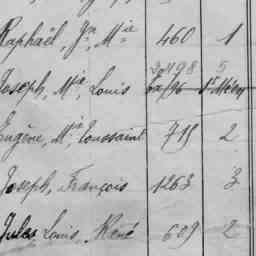 Raphaël, Jn, Mie 460 1
2498 5
Joseph, Mie, Louis
Eugène, Mie Toussaint 715 2
Joseph, François 1263 3
Jules Louis, René 609 2